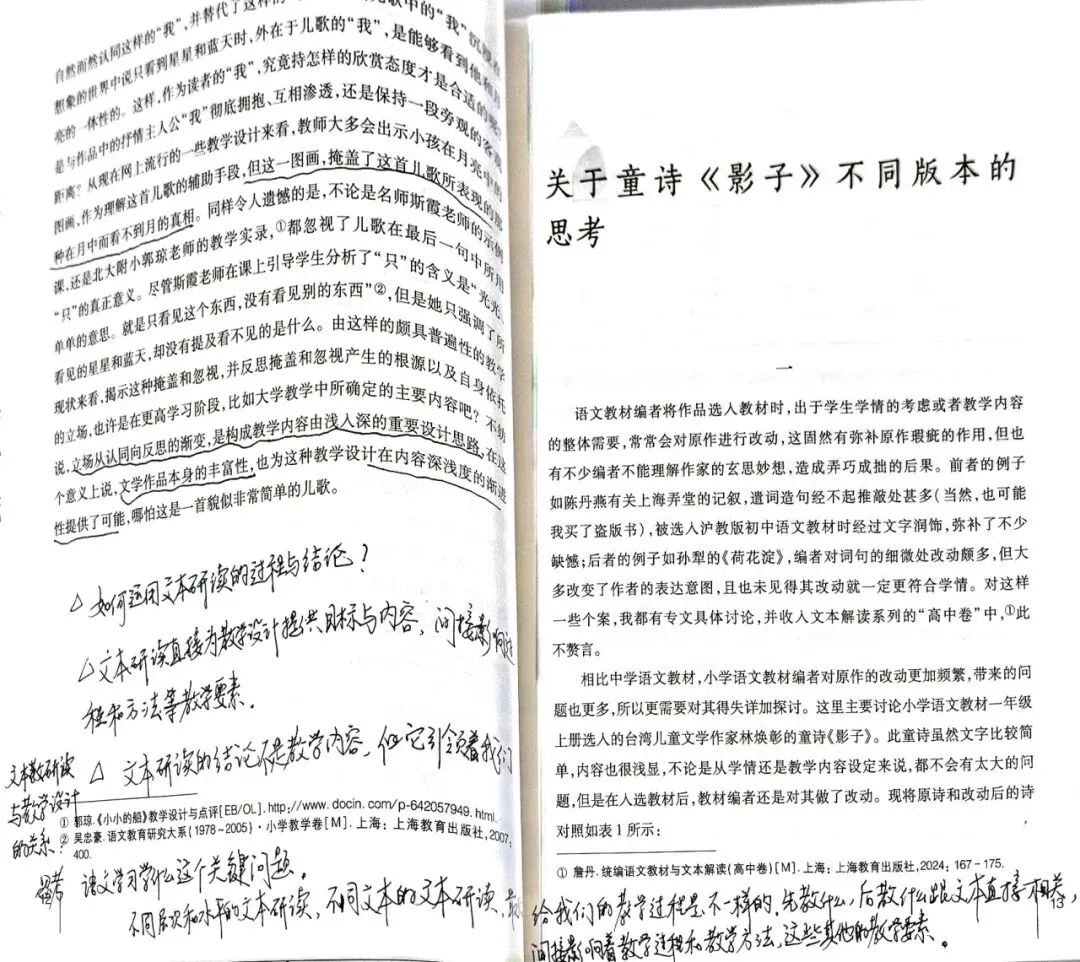 自然而然认同这样的“我”,并替代了这样的
想象的世界中说只看到星星和蓝天时,外在于儿歌的“我”,是能够看到他和月
亮的一体性的。这样,作为读者的“我”,究竟持怎样的欣赏态度才是合适的呢?
是与作品中的抒情主人公“我”彻底拥抱、互相渗透,还是保持一段旁观的客观
距离?从现在网上流行的一些教学设计来看,教师大多会出示小孩在月亮中的
图画,作为理解这首儿歌的辅助手段,但这一图画,掩盖了这首儿歌所表现的那
种在月中而看不到月的真相。同样令人遗憾的是,不论是名师斯霞老师的示例
课,还是北大附小郭琼老师的教学实录,①都忽视了儿歌在最后一句中所用
“只”的真正意义。尽管斯霞老师在课上引导学生分析了“只”的含义是“光光、
单单的意思。就是只看见这个东西,没有看见别的东西”②,但是她只强调了所
看见的星星和蓝天,却没有提及看不见的是什么。由这样的颇具普遍性的教学
现状来看,揭示这种掩盖和忽视,并反思掩盖和忽视产生的根源以及自身依托
的立场,也许是在更高学习阶段,比如大学教学中所确定的主要内容吧?不妨
说,立场从认同向反思的渐变,是构成教学内容由浅入深的重要设计思路,在这
个意义上说,文学作品本身的丰富性,也为这种教学设计在内容深浅度的渐进
性提供了可能,哪怕这是一首貌似非常简单的儿歌。
△如何运用文本研读的过程与结论?
△文本研读直接为教学设计提供目标与内容,间接影响过
程和方法等教学要素。
△文本研读的结论不是教学内容,但它引领着我们
文本教研读
与教学设计
的关系?
① 郭琼.《小小的船》教学设计与点评[EB/OL]. http://www.docin.com/p-642057949.html.
② 吴忠豪.语文教育研究大系(1978~2005)·小学教学卷[M].上海:上海教育出版社,2007:
400.
思考 语文学习学什么这个关键问题。
不同层次和水平的文本研读,不同文本的文本研读,
关于童诗《影子》不同版本的
思考
一
语文教材编者将作品选入教材时,出于学生学情的考虑或者教学内容
的整体需要,常常会对原作进行改动,这固然有弥补原作瑕疵的作用,但也
有不少编者不能理解作家的玄思妙想,造成弄巧成拙的后果。前者的例子
如陈丹燕有关上海弄堂的记叙,遣词造句经不起推敲处甚多(当然,也可能
我买了盗版书),被选入沪教版初中语文教材时经过文字润饰,弥补了不少
缺憾;后者的例子如孙犁的《荷花淀》,编者对词句的细微处改动颇多,但大
多改变了作者的表达意图,且也未见得其改动就一定更符合学情。对这样
一些个案,我都有专文具体讨论,并收入文本解读系列的“高中卷”中,①此
不赘言。
相比中学语文教材,小学语文教材编者对原作的改动更加频繁,带来的问
题也更多,所以更需要对其得失详加探讨。这里主要讨论小学语文教材一年级
上册选入的台湾儿童文学作家林焕彰的童诗《影子》。此童诗虽然文字比较简
单,内容也很浅显,不论是从学情还是教学内容设定来说,都不会有太大的问
题,但是在入选教材后,教材编者还是对其做了改动。现将原诗和改动后的诗
对照如表1所示:
① 詹丹.统编语文教材与文本解读(高中卷)[M].上海:上海教育出版社,2024:167-175.
给我们的教学过程是不一样的,先教什么,后教什么跟文本直接相关,
间接影响着教学过程和教学方法,这些其他的教学要素。